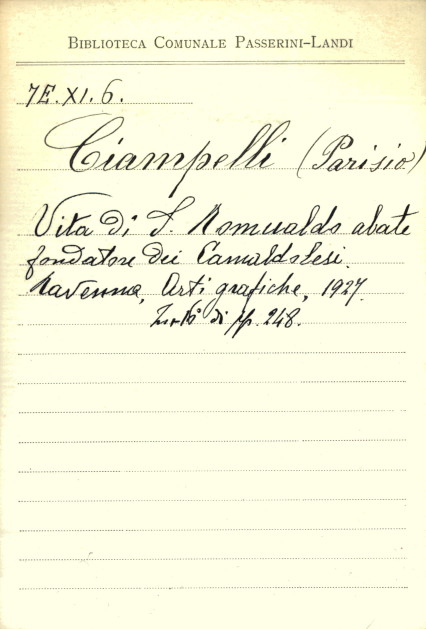 BIBLIOTECA COMUNALE PASSERINI-LANDI
7E.XI.6.
Ciampelli (Parisio)
Vita di S. Romualdo abate
fondatore dei Camaldolesi.
Ravenna, Arti grafiche, 1927.
di pp. 248.